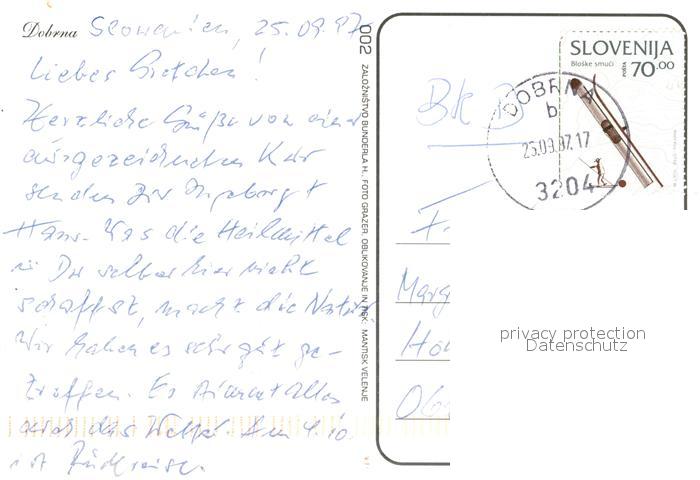 Dobrna Slowenien, 25.09.97
Liebes Gretchen!
Herzliche Grüße von einer
ausgezeichneten Kur
senden Dir Ingeborg +
Hans. Was die Heilmittel
Du selber hier nicht
schaffst, macht die Natur.
Wir haben es sehr gut ge-
troffen. Es stimmt alles
auch das Wetter. Am 4.10.
ist Rückreise.
002 ZALOŽNIŠTVO BUNDERLA H., FOTO GRAZER, OBLIKOVANJE IN TISK: MANTISK VELENJE
SLOVENIJA
Bloške smuči
POŠTA 70.00
DOBRNA
b
25.09.97.17
3204
F
Marg
Ob
privacy protection
Datenschutz